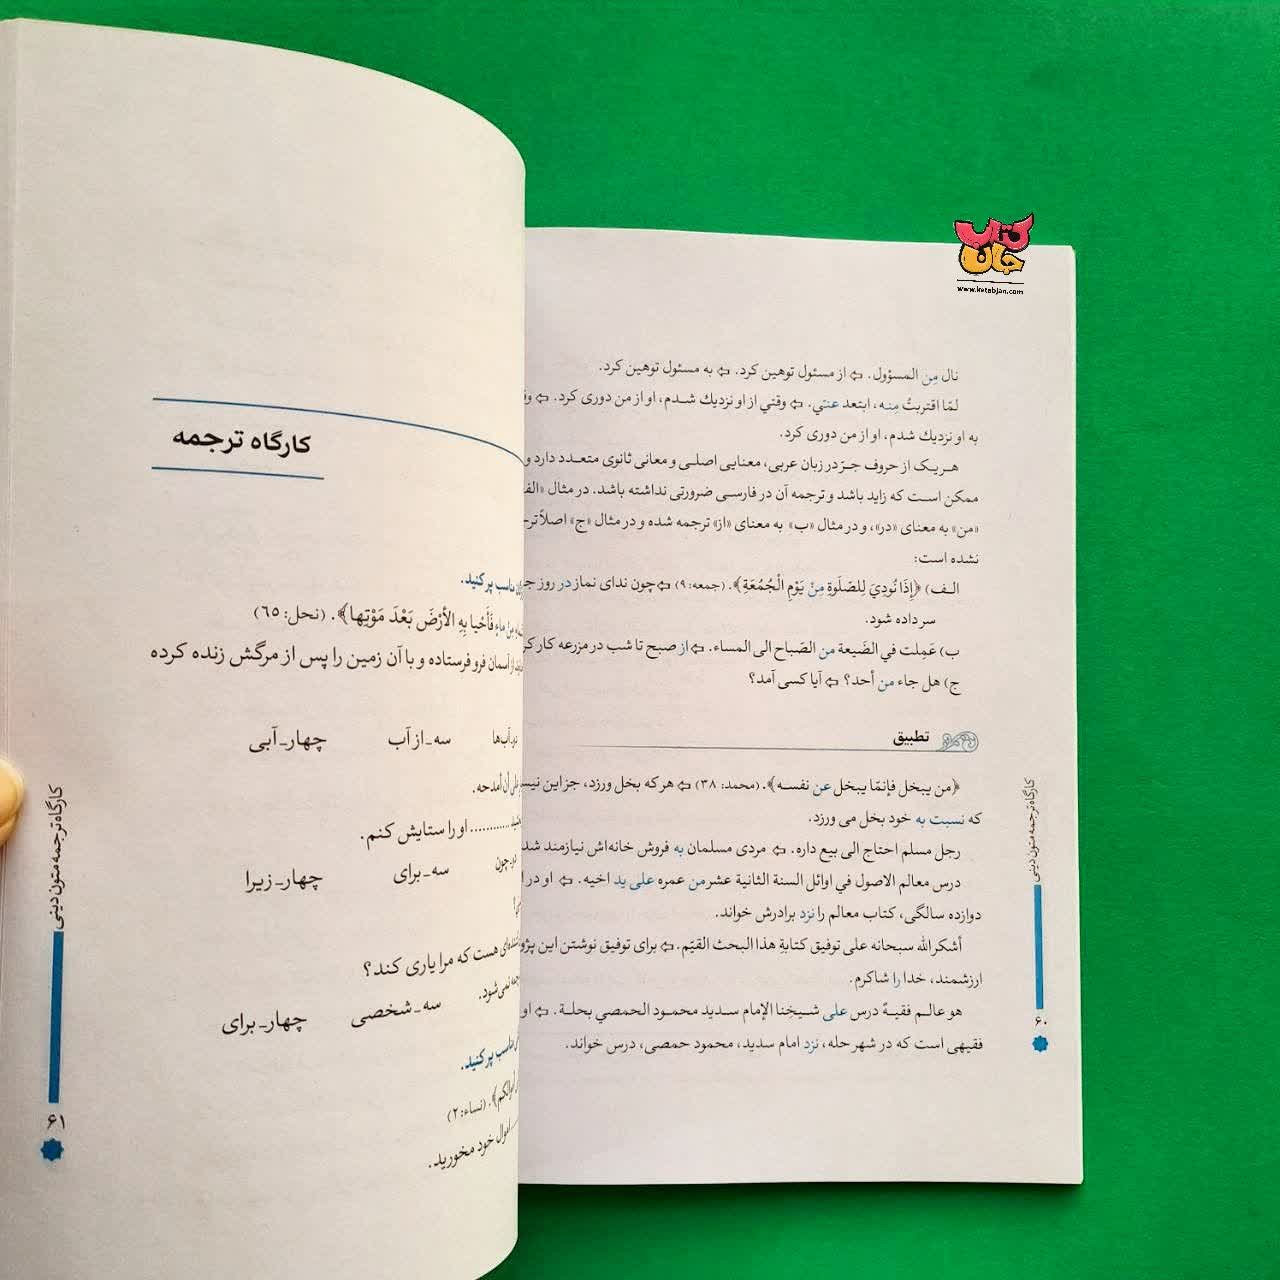 کتاب جان
www.ketabjan.com
نال مِن المسؤول. ⇦ از مسئول توهین کرد. ⇦ به مسئول توهین کرد.
لمّا اقتربتُ مِنـه، ابتعد عنّي. ⇦ وقتي از او نزدیك شـدم، او از من دوری کرد. ⇦
به او نزدیك شدم، او از من دوری کرد.
هـریـک از حروف جـرّ در زبان عربی، معنایی اصلـی و معانی ثانوی متعـدد دارد و
ممکن اسـت که زاید باشد و ترجمه آن در فارسـی ضرورتی نداشته باشد. در مثال «الف
«من» به معنای «در»، و در مثال «ب» به معنای «از» ترجمه شده و در مثال «ج» اصلاً
نشده است:
الـف) ﴿إِذَا نُودِيَ لِلصَّلَوةِ مِنْ يَوْمِ الْجُمُعَةِ﴾. (جمعه: ۹) ⇦ چون ندای نماز در روز
سر داده شود.
ب) عَمِلت في الضَّيعة من الصّباح الى المساء. ⇦ از صبح تا شب در مزرعه کار
ج) هل جاء من أحد؟ ⇦ آیا کسی آمد؟
تطبیق
﴿من يبخل فإنمّا يبخل عن نفسـه﴾. (محمد: ۳۸) ⇦ هر که بخل ورزد، جز این
که نسبت به خود بخل می ورزد.
رجل مسلم احتاج الى بيع داره. ⇦ مردی مسلمان به فروش خانه‌اش نیازمند
درس معالم الاصول في اوائل السنة الثانية عشر من عمره على يد اخيه. ⇦ او در
دوازده سالگی، کتاب معالم را نزد برادرش خواند.
أشکر الله سبحانه على توفيق كتابةِ هذا البحث القيّم. ⇦ برای توفیق نوشتن این
ارزشمند، خدا را شاکرم.
هو عالـم فقيـهٌ درس على شـيخِنا الإمام سـديد محمـود الحمصي بحلـة. ⇦ او
فقیهی است که در شهر حله، نزد امام سدید، محمود حمصی، درس خواند.
کارگاه ترجمه متون دینی
۶۰
کارگاه ترجمه
مناسب پر کنید.
مِن ماءٍ فَأَحْيا بِهِ الأَرْضَ بَعْدَ مَوْتِها﴾. (نحل: ۶۵)
از آسمان فرو فرستاده و با آن زمین را پس از مرگش زنده کرده
دو-آب‌ها سه-از آب چهار-آبی
أن أمدحه.
............ او را ستایش کنم.
دو-چون سه-برای چهار-زیرا
هست که مرا یاری کند؟
نمی‌شود. سه-شخصی چهار-برای
مناسب پر کنید.
(نساء: ۲)
اموال خود مخورید.
کارگاه ترجمه متون دینی
۶۱